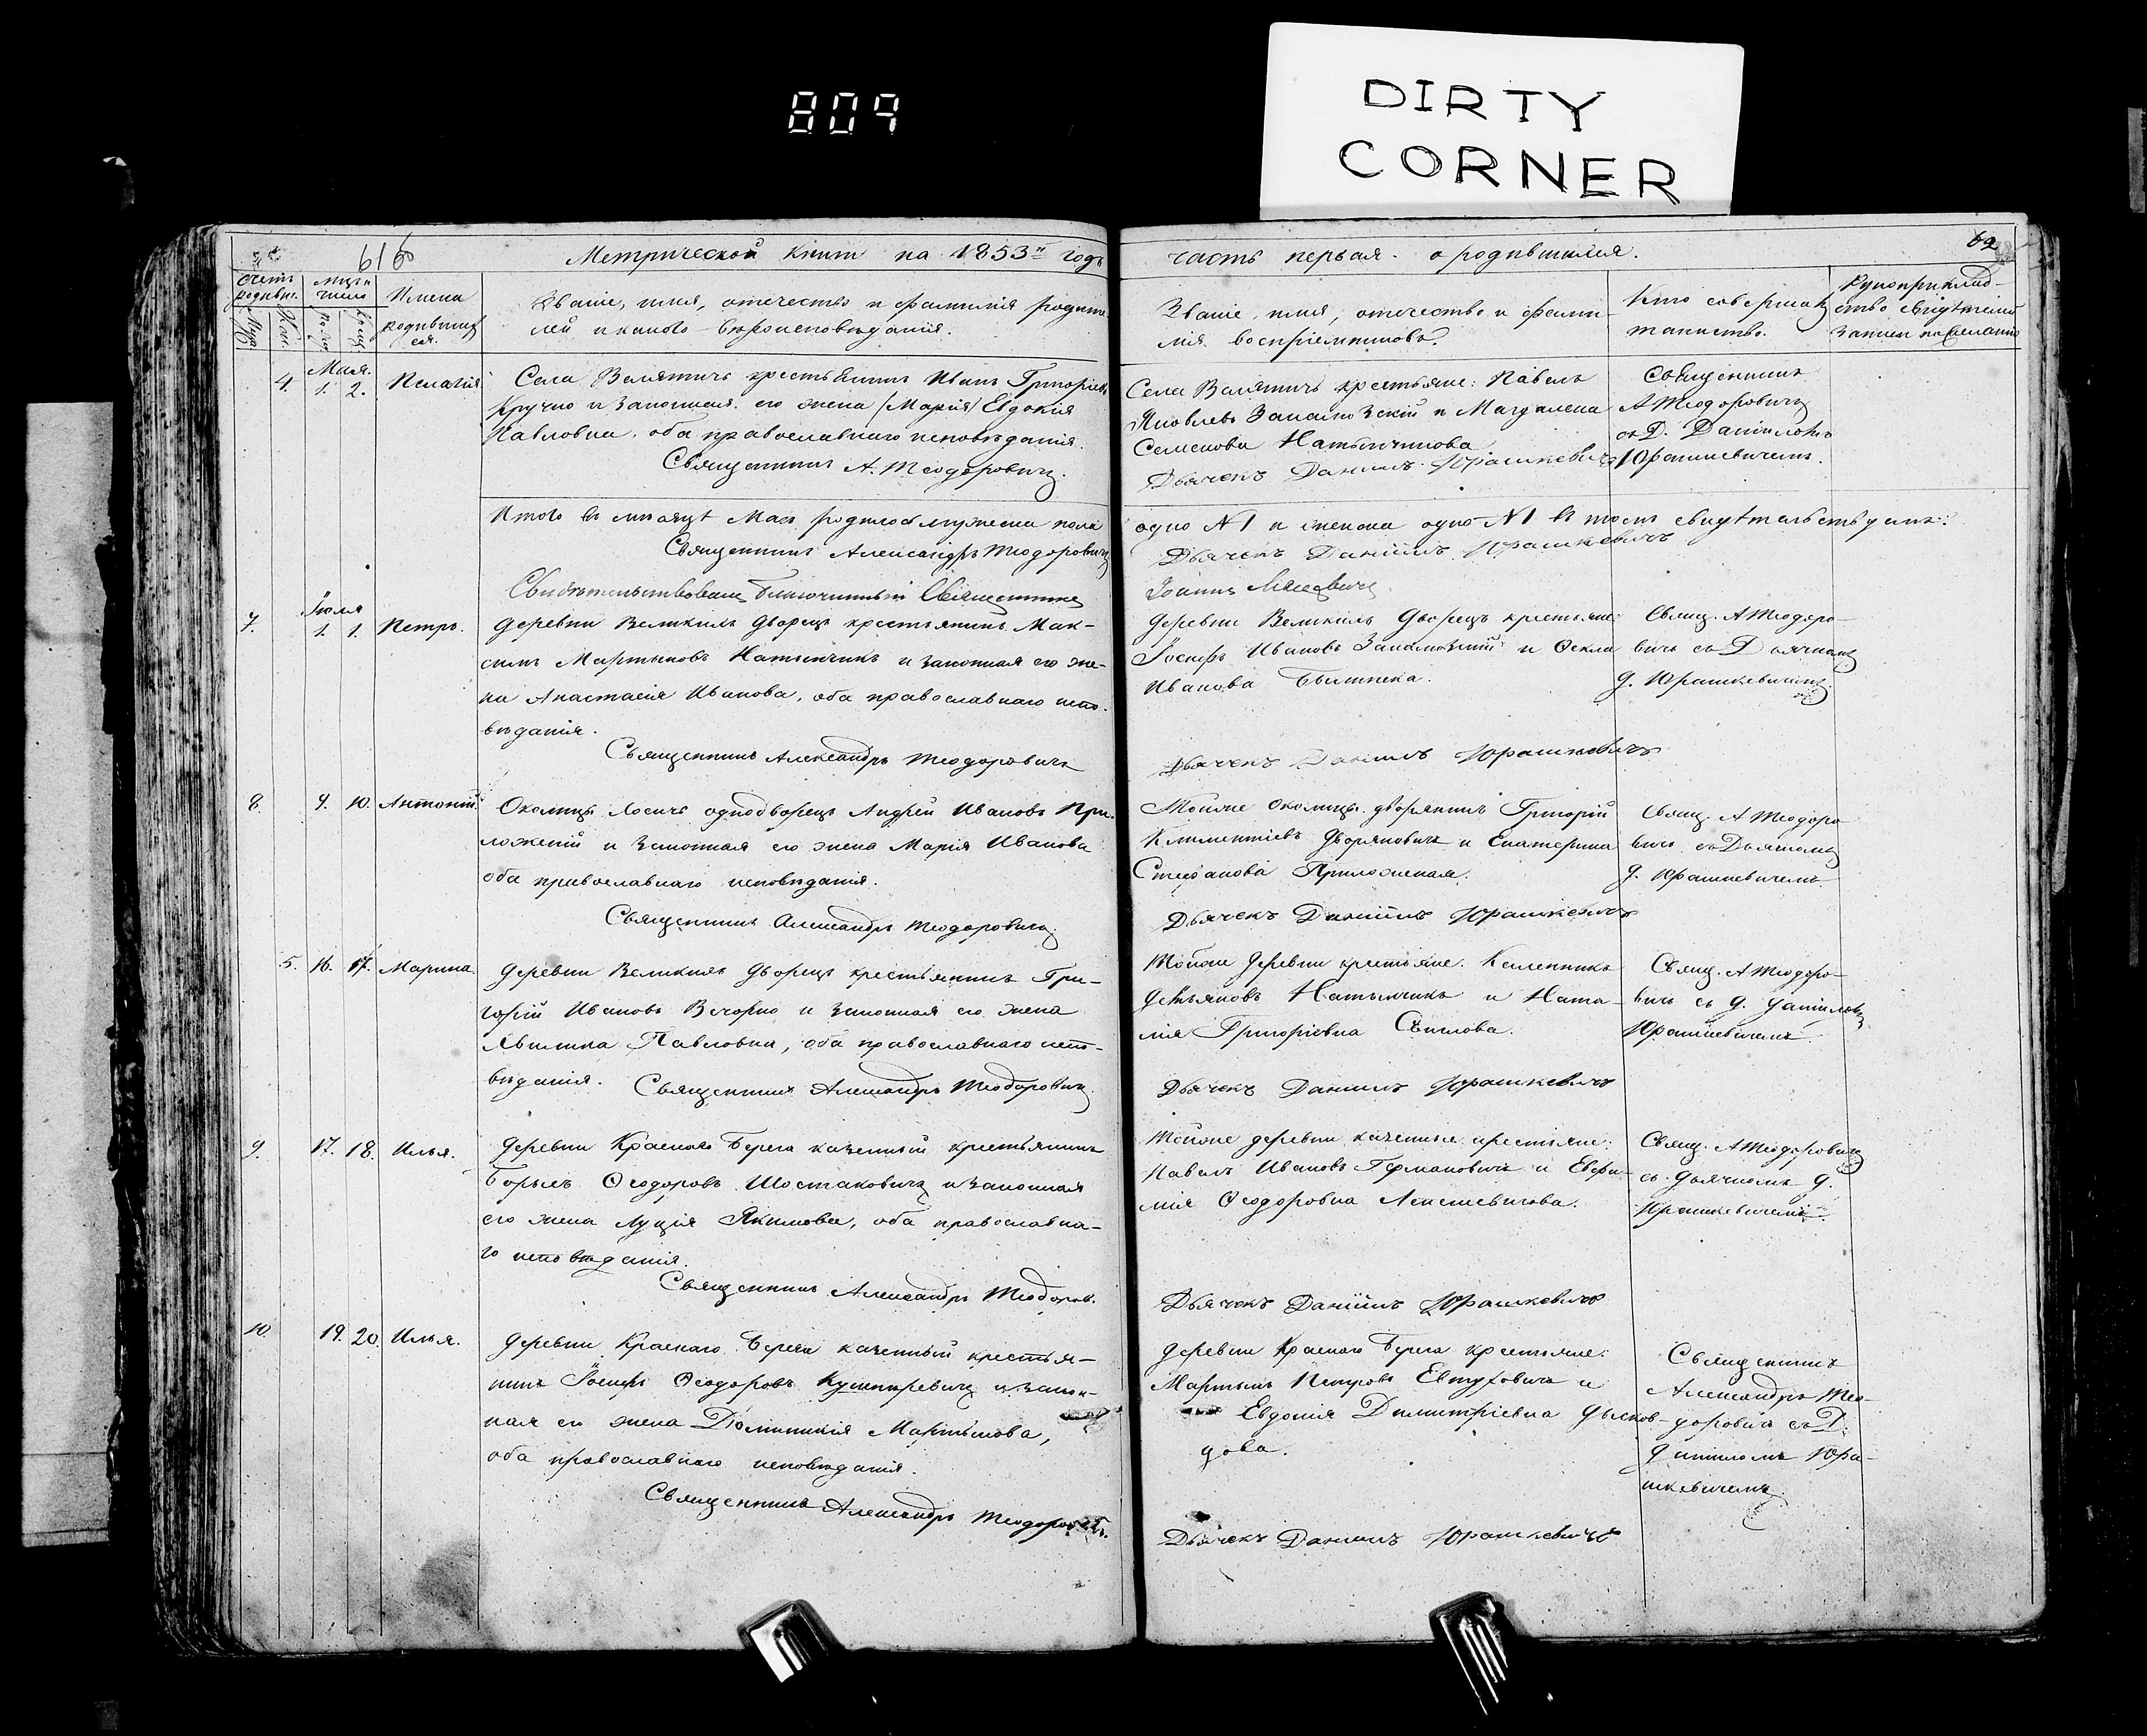 809
DIRTY
CORNER
616
Метрической книги на 1853й годъ
часть первая. о родившихся.
62
Счетъ родивш.
Мѣсяцъ и число
Имена родившихся.
Званіе, имя, отчество и фамилія родителей и какого вѣроисповѣданія.
Званіе, имя, отчество и фамилія воспріемниковъ.
Кто совершалъ таинство.
Рукоприкладство свидѣтелей записи по желанію
4. Мая. 1. 2. Пелагія
Села Валятичъ крестьянинъ Иванъ Григоріевъ
Кручко и законная его жена (Марія) Евдокія
Павловна, оба православнаго исповѣданія.
Священникъ А. Теодоровичъ.
Села Валятичъ крестьяне: Павелъ
Яковлевъ и Магдалена
Семенова Натынчикова
Дьячекъ Даніилъ Юрашкевичъ
Священникъ
А Теодоровичъ
съ Д. Даніиломъ
Юрашкевичемъ.
Итого въ мѣсяцѣ Маѣ родилось мужеска пола
одно №1 и женска одно №1 въ томъ свидѣтельствуемъ:
Священникъ Александръ Теодоровичъ
Дьячекъ Даніилъ Юрашкевичъ
Свидѣтельствовалъ Благочинный Священникъ
Іоаннъ
7. Іюля 1. 1. Петръ.
Деревни Великихъ Дворецъ крестьянинъ Мак-
симъ Мартыновъ Натынчикъ и законная его же-
на Анастасія Иванова, оба православнаго испо-
вѣданія.
Священникъ Александръ Теодоровичъ
Деревни Великихъ Дворецъ крестьяне
Іосифъ Ивановъ и Текла
Иванова
Дьячекъ Даніилъ Юрашкевичъ
Свящ. А Теодоро-
вичъ съ Дьячкомъ
Д. Юрашкевичемъ.
8. 9. 10. Антоній
Околицы Лосичъ однодворецъ Андрей Ивановъ При-
ложскій и законная его жена Марія Иванова
оба православнаго исповѣданія.
Священникъ Александръ Теодоровичъ
Тойже околицы дворянинъ Григорій
Климентіевъ Дворяновичъ и Екатерина
Стефанова
Дьячекъ Даніилъ Юрашкевичъ
Свящ. А Теодоро
вичъ съ Дьячкомъ
Д. Юрашкевичемъ.
5. 16. 17. Марина
Деревни Великихъ Дворецъ крестьянинъ Гри-
горій Ивановъ Вечорко и законная его жена
Павловна, оба православнаго испо-
вѣданія. Священникъ Александръ Теодоровичъ
Тойже деревни крестьяне:
Демьяновъ Натынчикъ и Ната-
лія Григоріевна
Дьячекъ Даніилъ Юрашкевичъ
Свящ. А Теодоро-
вичъ съ Д. Даніиломъ
Юрашкевичемъ.
9. 17. 18. Илья.
Деревни Краснаго Берега казенный крестьянинъ
Борисъ Ѳеодоровъ Шостаковичъ и законная
его жена Луція Якимова, оба православна-
го исповѣданія.
Священникъ Александръ Теодоров.
Тойже деревни казенные крестьяне:
Павелъ Ивановъ Германовичъ и Евфи-
мія Ѳеодоровна
Дьячекъ Даніилъ Юрашкевичъ
Свящ. А Теодоровичъ
съ дьячкомъ Д.
Юрашкевичемъ.
10. 19. 20. Илья.
Деревни Краснаго Берега казенный крестья-
нинъ Іосифъ Ѳеодоровъ и закон-
ная его жена Доминикія Мартынова,
оба православнаго исповѣданія.
Священникъ Александръ Теодоровичъ.
Деревни Краснаго Берега крестьяне:
Мартынъ Петровъ Евтуховичъ и
Евдокія Димитріевна
Дьячекъ Даніилъ Юрашкевичъ
Священникъ
Александръ Тео-
доровичъ съ Д.
Даніиломъ Юра-
шкевичемъ.